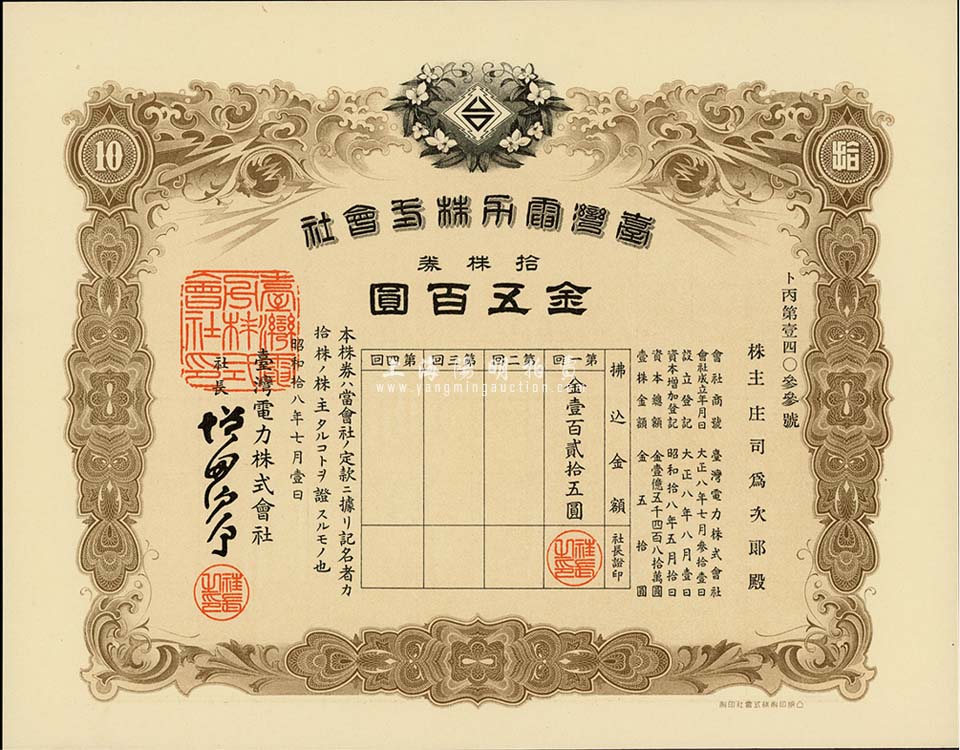 10
拾
臺灣電力株式會社
拾株券
金五百圓
ト丙第壹四〇參參號
株主 庄司爲次郎殿
會社商號 臺灣電力株式會社
會社成立年月日 大正八年七月參拾壹日
設立登記 大正八年八月壹日
資本增加登記 昭和拾八年五月拾日
資本總額 金壹億五千四百八拾萬圓
壹株金額 金五拾圓
拂込金額 社長證印
第一回 金壹百貳拾五圓
第二回
第三回
第四回
本株券ハ當會社ノ定款ニ據リ記名者カ
拾株ノ株主タルコトヲ證スルモノ也
昭和拾八年七月壹日
臺灣電力株式會社
社長
臺灣電力株式會社印
社長之印
社長之印
上海陽明拍賣
www.yangmingauction.com
凸版印刷株式會社印刷